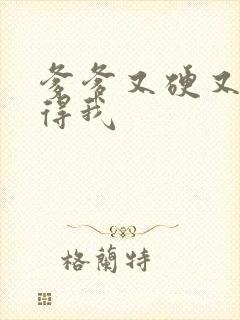 爹爹又硬又
得我
格蘭特